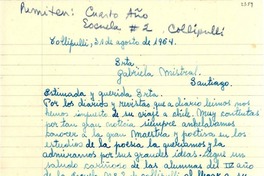 Remiten: Cuarto Año
Escuela # 2 Collipulli
Collipulli, 31 de agosto de 1954.
Srta
Gabriela Mistral.
Santiago.
Estimada y querida Srta.
Por los diarios y revistas que a diario leímos nos
hemos impuesto de su viaje a Chile. Muy contentas
por tan grata noticia, siempre anhelábamos
conocer a la gran Maestra y poetisa en los
estudios de la poesía, la queríamos y la
admiramos por sus grandes ideas. Llegue un
saludo cariñoso de las alumnas del IV año
de la Escuela N° 2 de Collipulli al llegar a su